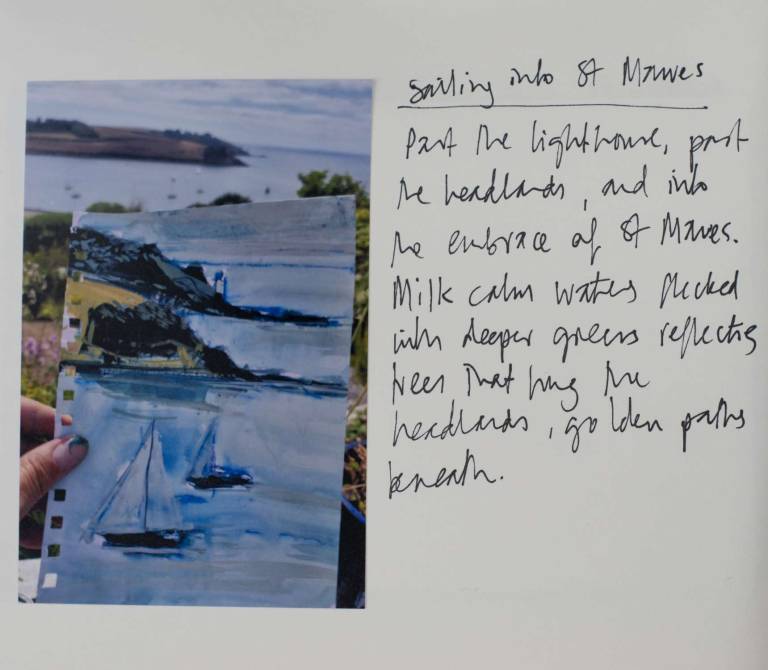 Sailing into St Mawes
Past the lighthouse, past
the headlands, and into
the embrace of St Mawes.
Milk calm waters flecked
with deeper greens reflecting
trees that hug the
headlands, golden paths
beneath.